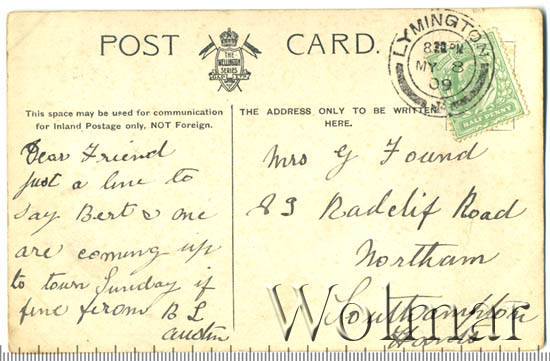 POST CARD.
THE
WELLINGTON
SERIES
LYMINGTON
8 30 PM
MY 8
09
HALF PENNY
This space may be used for communication
for Inland Postage only, NOT Foreign.
THE ADDRESS ONLY TO BE WRITTEN
HERE.
Dear Friend
just a line to
say Bert & me
are coming up
to town Sunday if
fine from B L
Austin
Mrs G Found
83 Radclif Road
Northam
Southampton
Hants
Wolmar